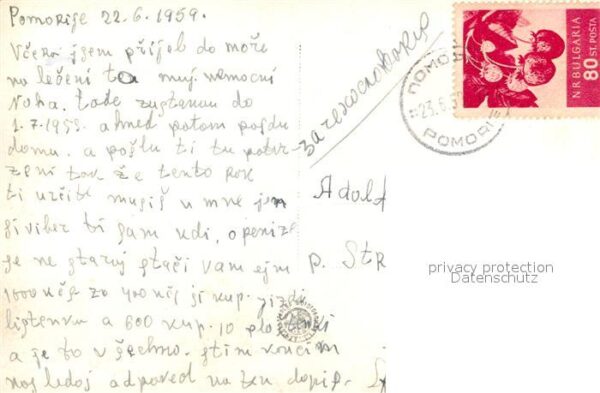 Pomorije 22.6.1959.
Včera jsem přijel do moře
na lečeni ta muj nemocni
Noha. tade zustenau do
1.7.1959. ahned potom pojdu
domu. a pošlu ti tu potvr-
zeni tak že tento rok
ti určite musiš u mne jen
si viber ti sam kdi, o penize
se ne staraj stači vam ejn
1000 kčs za 400 kčs ji kup. jizdi
listenku a 600 kup. 10
a je to všechno. stim končim
nas ledoj adpoved na ten dopis.
за чехословакия
Adolf
p. Str
N.R. BULGARIA
80 ST. POSTA
ПОМОРИЕ
23.6.59
POMORIE
privacy protection
Datenschutz